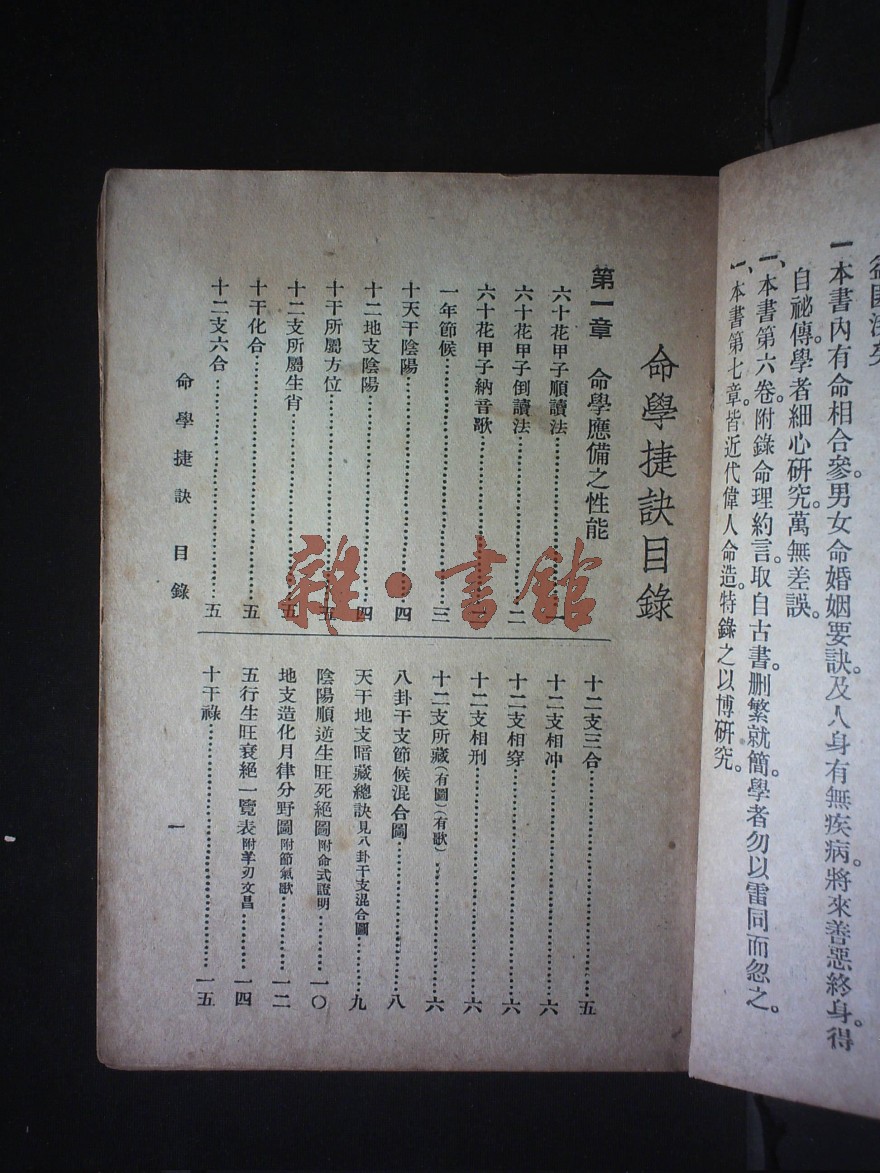 一本書內有命相合參。男女命婚姻要訣。及人身有無疾病。將來善惡終身。得
自祕傳。學者細心研究。萬無差誤。
一、本書第六卷。附錄命理約言。取自古書。刪繁就簡。學者勿以雷同而忽之。
一、本書第七章。皆近代偉人命造。特錄之以博研究。
命學捷訣目錄
第一章 命學應備之性能
六十花甲子順讀法……一
六十花甲子倒讀法……二
六十花甲子納音歌……
一年節候……三
十天干陰陽……四
十二地支陰陽……四
十干所屬方位……五
十二支所屬生肖……五
十干化合……五
十二支六合……五
十二支三合……五
十二支相冲……六
十二支相穿……六
十二支相刑……六
十二支所藏(有圖)(有歌)……六
八卦干支節候混合圖……八
天干地支暗藏總訣見八卦干支混合圖……九
陰陽順逆生旺死絕圖附命式證明……一〇
地支造化月律分野圖附節氣歌……一二
五行生旺衰絕一覽表附羊刃文昌……一四
十干祿……一五
命學捷訣 目錄
一
雜·書館